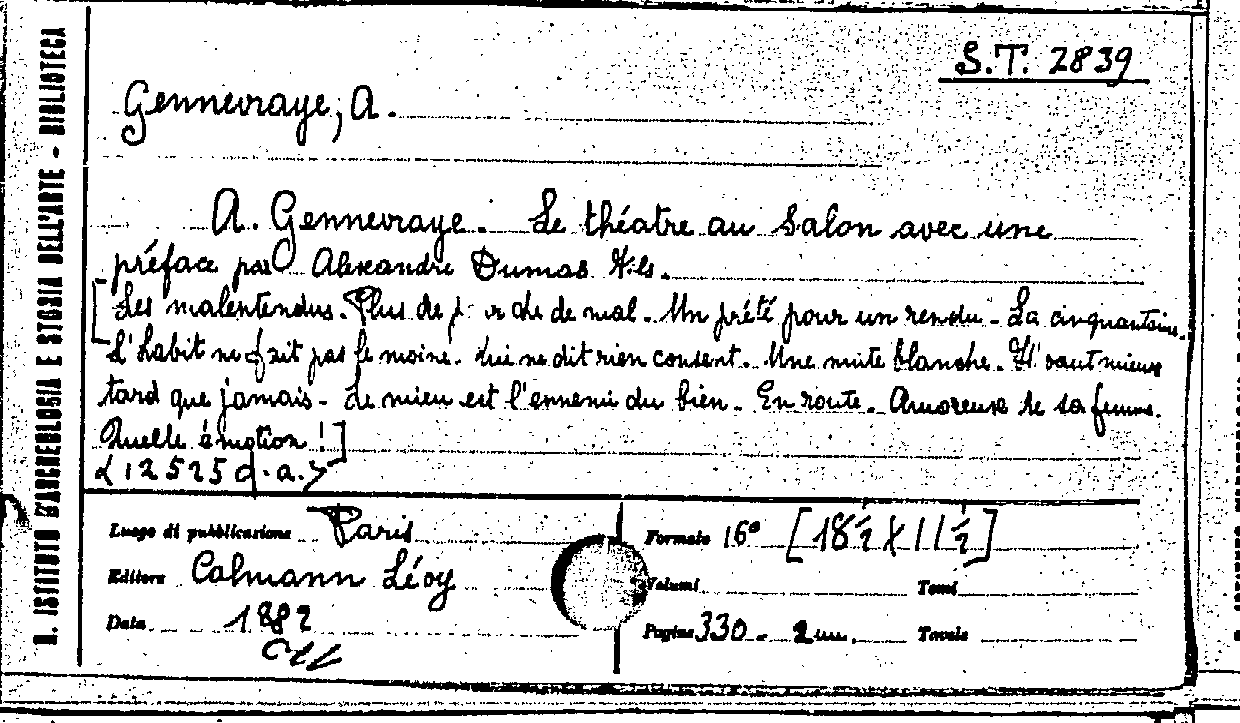 R. ISTITUTO D'ARCHEOLOGIA E STORIA DELL'ARTE - BIBLIOTECA
S.T. 2839
Gennevraye, A.
A. Gennevraye. Le théatre au Salon avec une
préface par Alexandre Dumas Fils.
[Les malentendus. Plus de de mal. Un prété pour un rendu. La cinquantaine.
L'habit ne fait pas le moine. Qui ne dit rien consent. Une nuite blanche. Il vaut mieux
tard que jamais. Le mieu est l'ennemi du bien. En route. Amoreuse de sa femme.
Quelle émotion!]
<12525 d.a.>
Luogo di pubblicazione Paris
Formato 16° [18½ X 11½]
Editore Calmann Lévy
Volumi Tomi
Data 1882
Pagine 330. Tavole